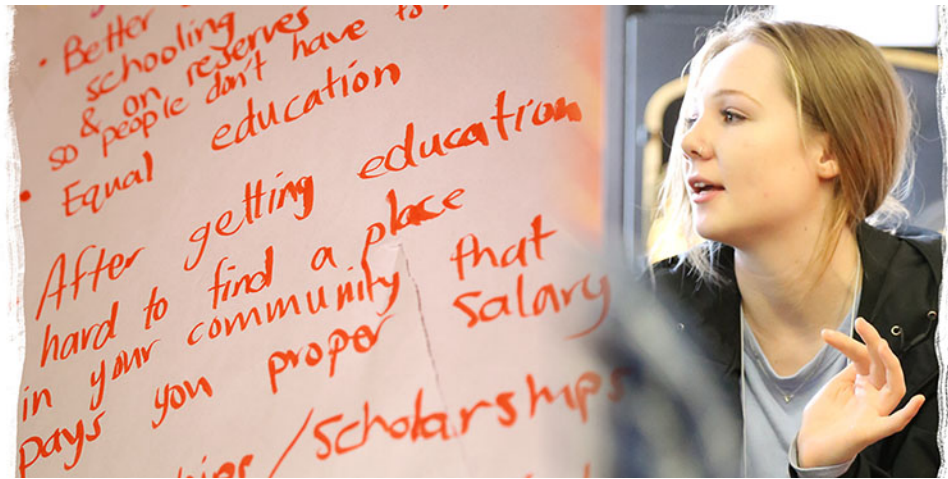 • Better
schooling
& on reserves
so people don't have to
• Equal education
After getting education
hard to find a place
in your community that
pays you proper salary
/scholarships